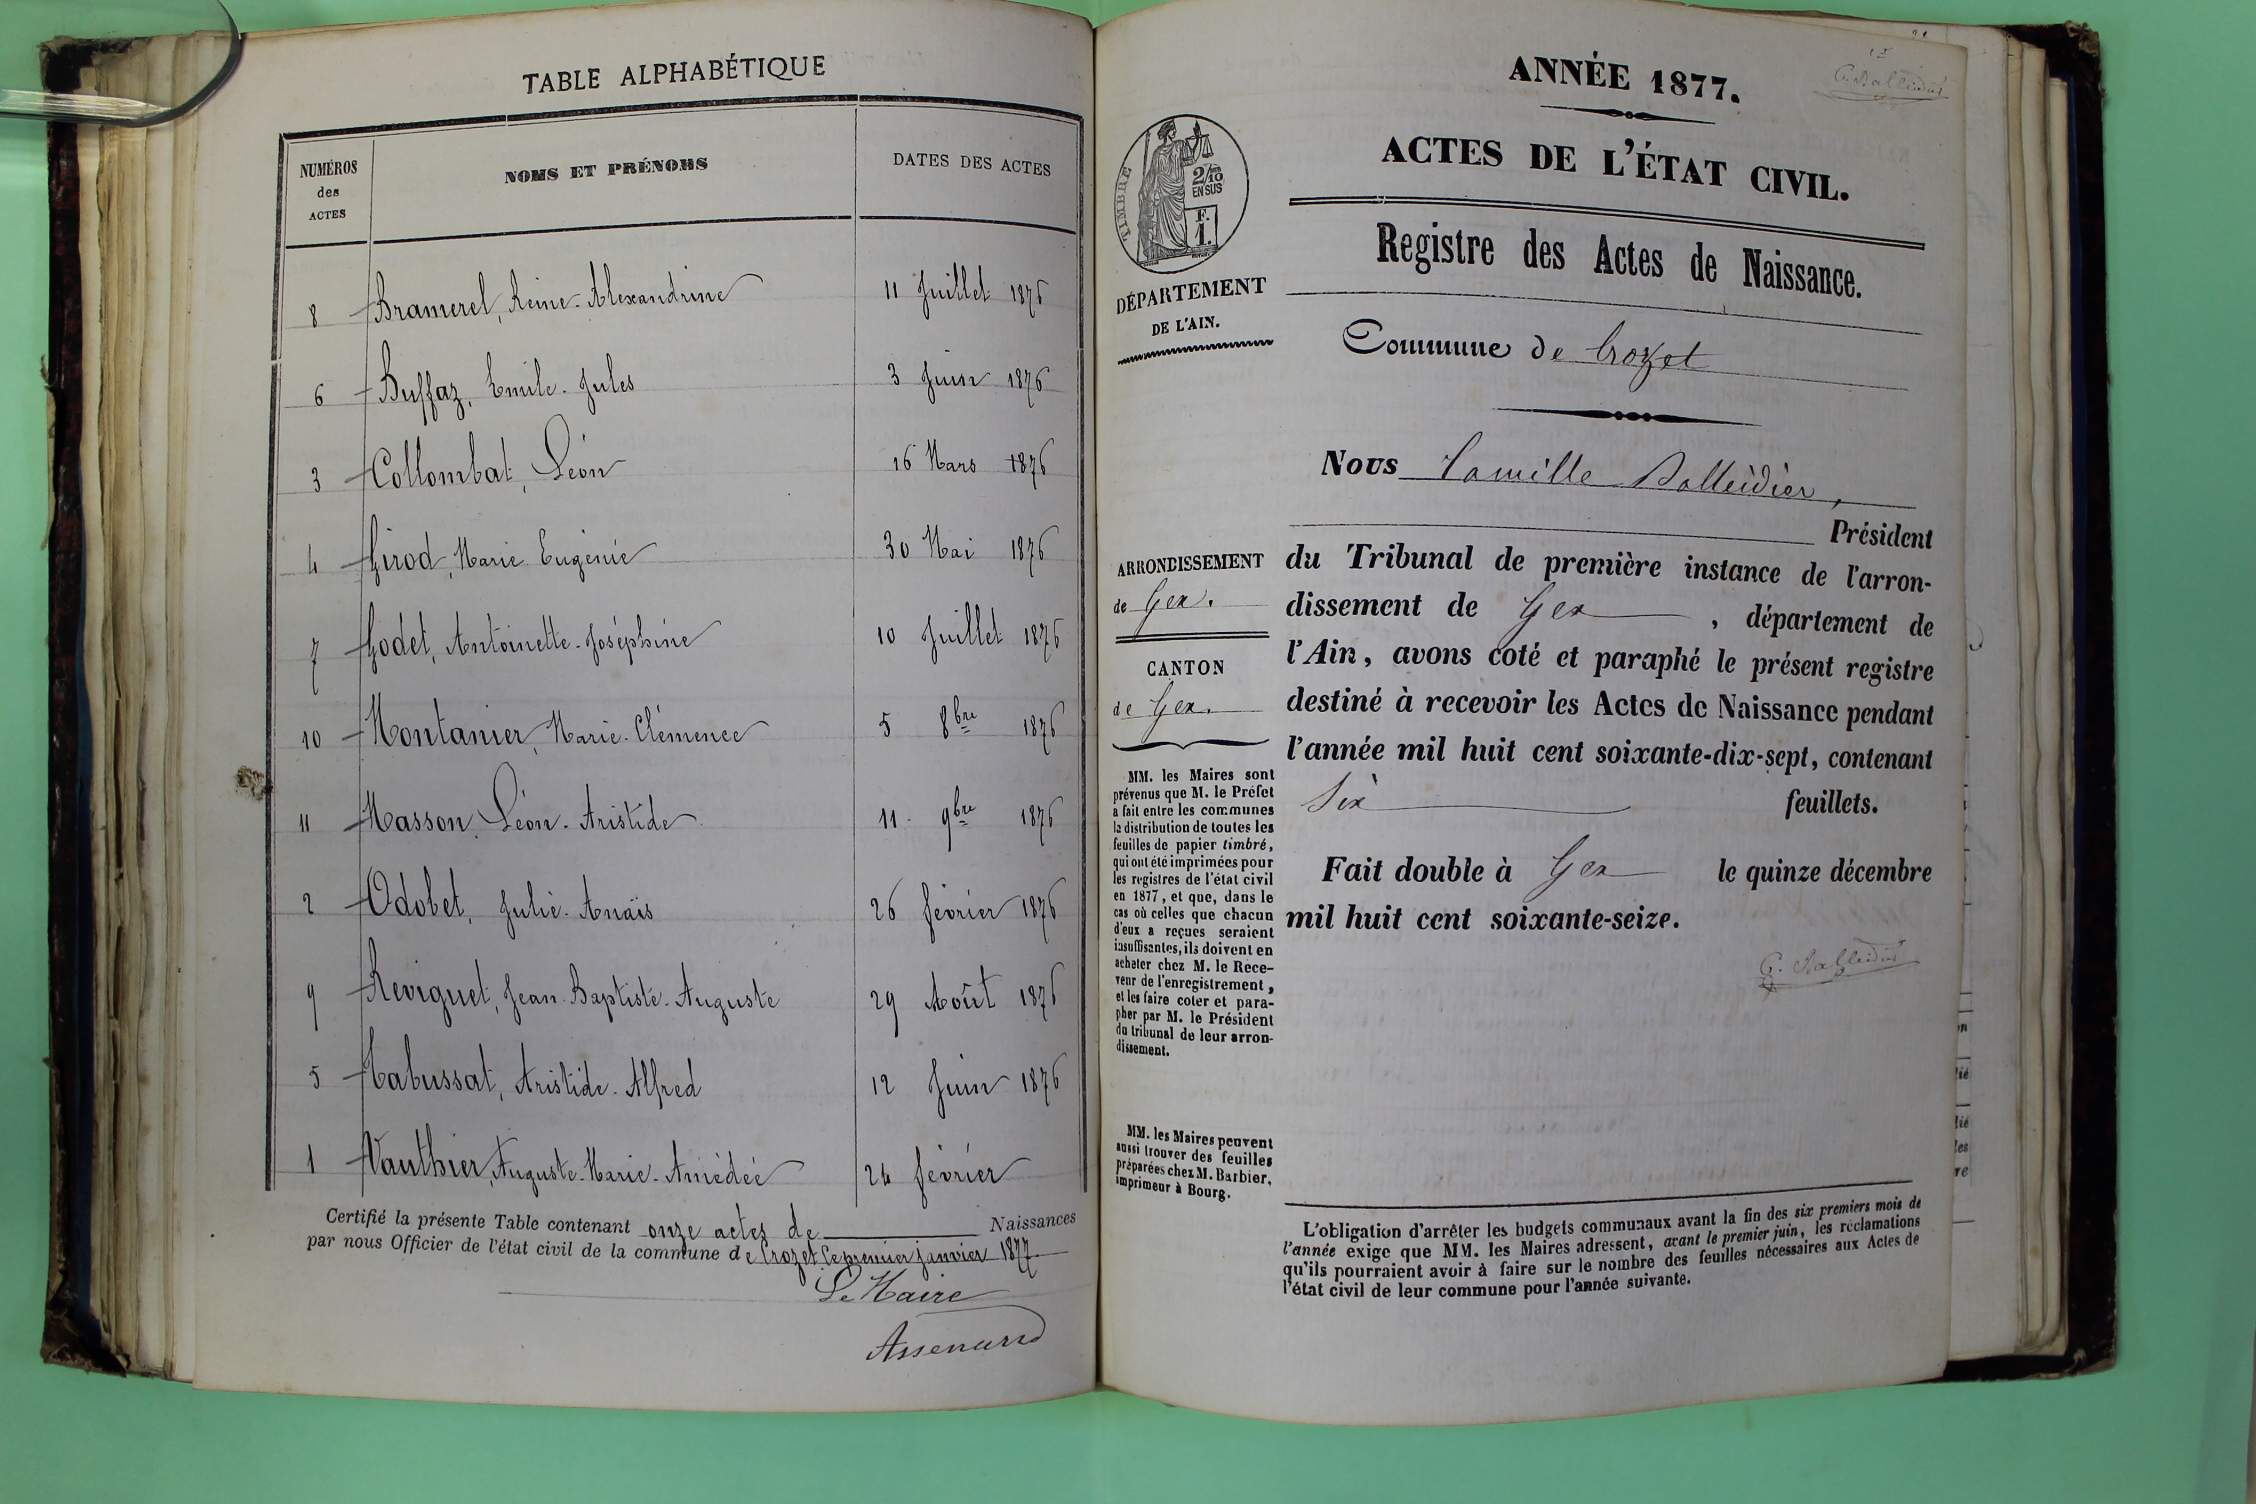 TABLE ALPHABÉTIQUE
NUMÉROS des ACTES NOMS ET PRÉNOMS DATES DES ACTES
8 Bramerel, Reine-Alexandrine 11 Juillet 1876
6 Buffaz, Emile-Jules 3 Juin 1876
3 Collombat, Léon 16 Mars 1876
4 Girod, Marie Eugénie 30 Mai 1876
7 Godet, Antoinette-Joséphine 10 Juillet 1876
10 Montanier, Marie-Clémence 5 8bre 1876
11 Masson, Léon-Aristide 11 9bre 1876
2 Odobet, Julie-Anaïs 26 février 1876
9 Reviguet, Jean-Baptiste-Auguste 29 Août 1876
5 Tabussat, Aristide-Alfred 12 Juin 1876
1 Vauthier, Auguste-Marie-Amédée 24 février
Certifié la présente Table contenant onze actes de Naissances
par nous Officier de l'état civil de la commune de Crozet, ce premier janvier 1877.
Le Maire
ANNÉE 1877.
ACTES DE L'ÉTAT CIVIL.
Registre des Actes de Naissance.
TIMBRE
2/10 EN SUS
F. 1.
DÉPARTEMENT
DE L'AIN.
Commune de Crozet
Nous Camille Balleidier,
Président
ARRONDISSEMENT
de Gex.
CANTON
de Gex.
du Tribunal de première instance de l'arron-
dissement de Gex, département de
l'Ain, avons coté et paraphé le présent registre
destiné à recevoir les Actes de Naissance pendant
l'année mil huit cent soixante-dix-sept, contenant
six feuillets.
Fait double à Gex le quinze décembre
mil huit cent soixante-seize.
MM. les Maires sont
prévenus que M. le Préfet
a fait entre les communes
la distribution de toutes les
feuilles de papier timbré,
qui ont été imprimées pour
les registres de l'état civil
en 1877, et que, dans le
cas où celles que chacun
d'eux a reçues seraient
insuffisantes, ils doivent en
acheter chez M. le Rece-
veur de l'enregistrement,
et les faire coter et para-
pher par M. le Président
du tribunal de leur arron-
dissement.
MM. les Maires peuvent
aussi trouver des feuilles
préparées chez M. Barbier,
imprimeur à Bourg.
L'obligation d'arrêter les budgets communaux avant la fin des six premiers mois de
l'année exige que MM. les Maires adressent, avant le premier juin, les réclamations
qu'ils pourraient avoir à faire sur le nombre des feuilles nécessaires aux Actes de
l'état civil de leur commune pour l'année suivante.